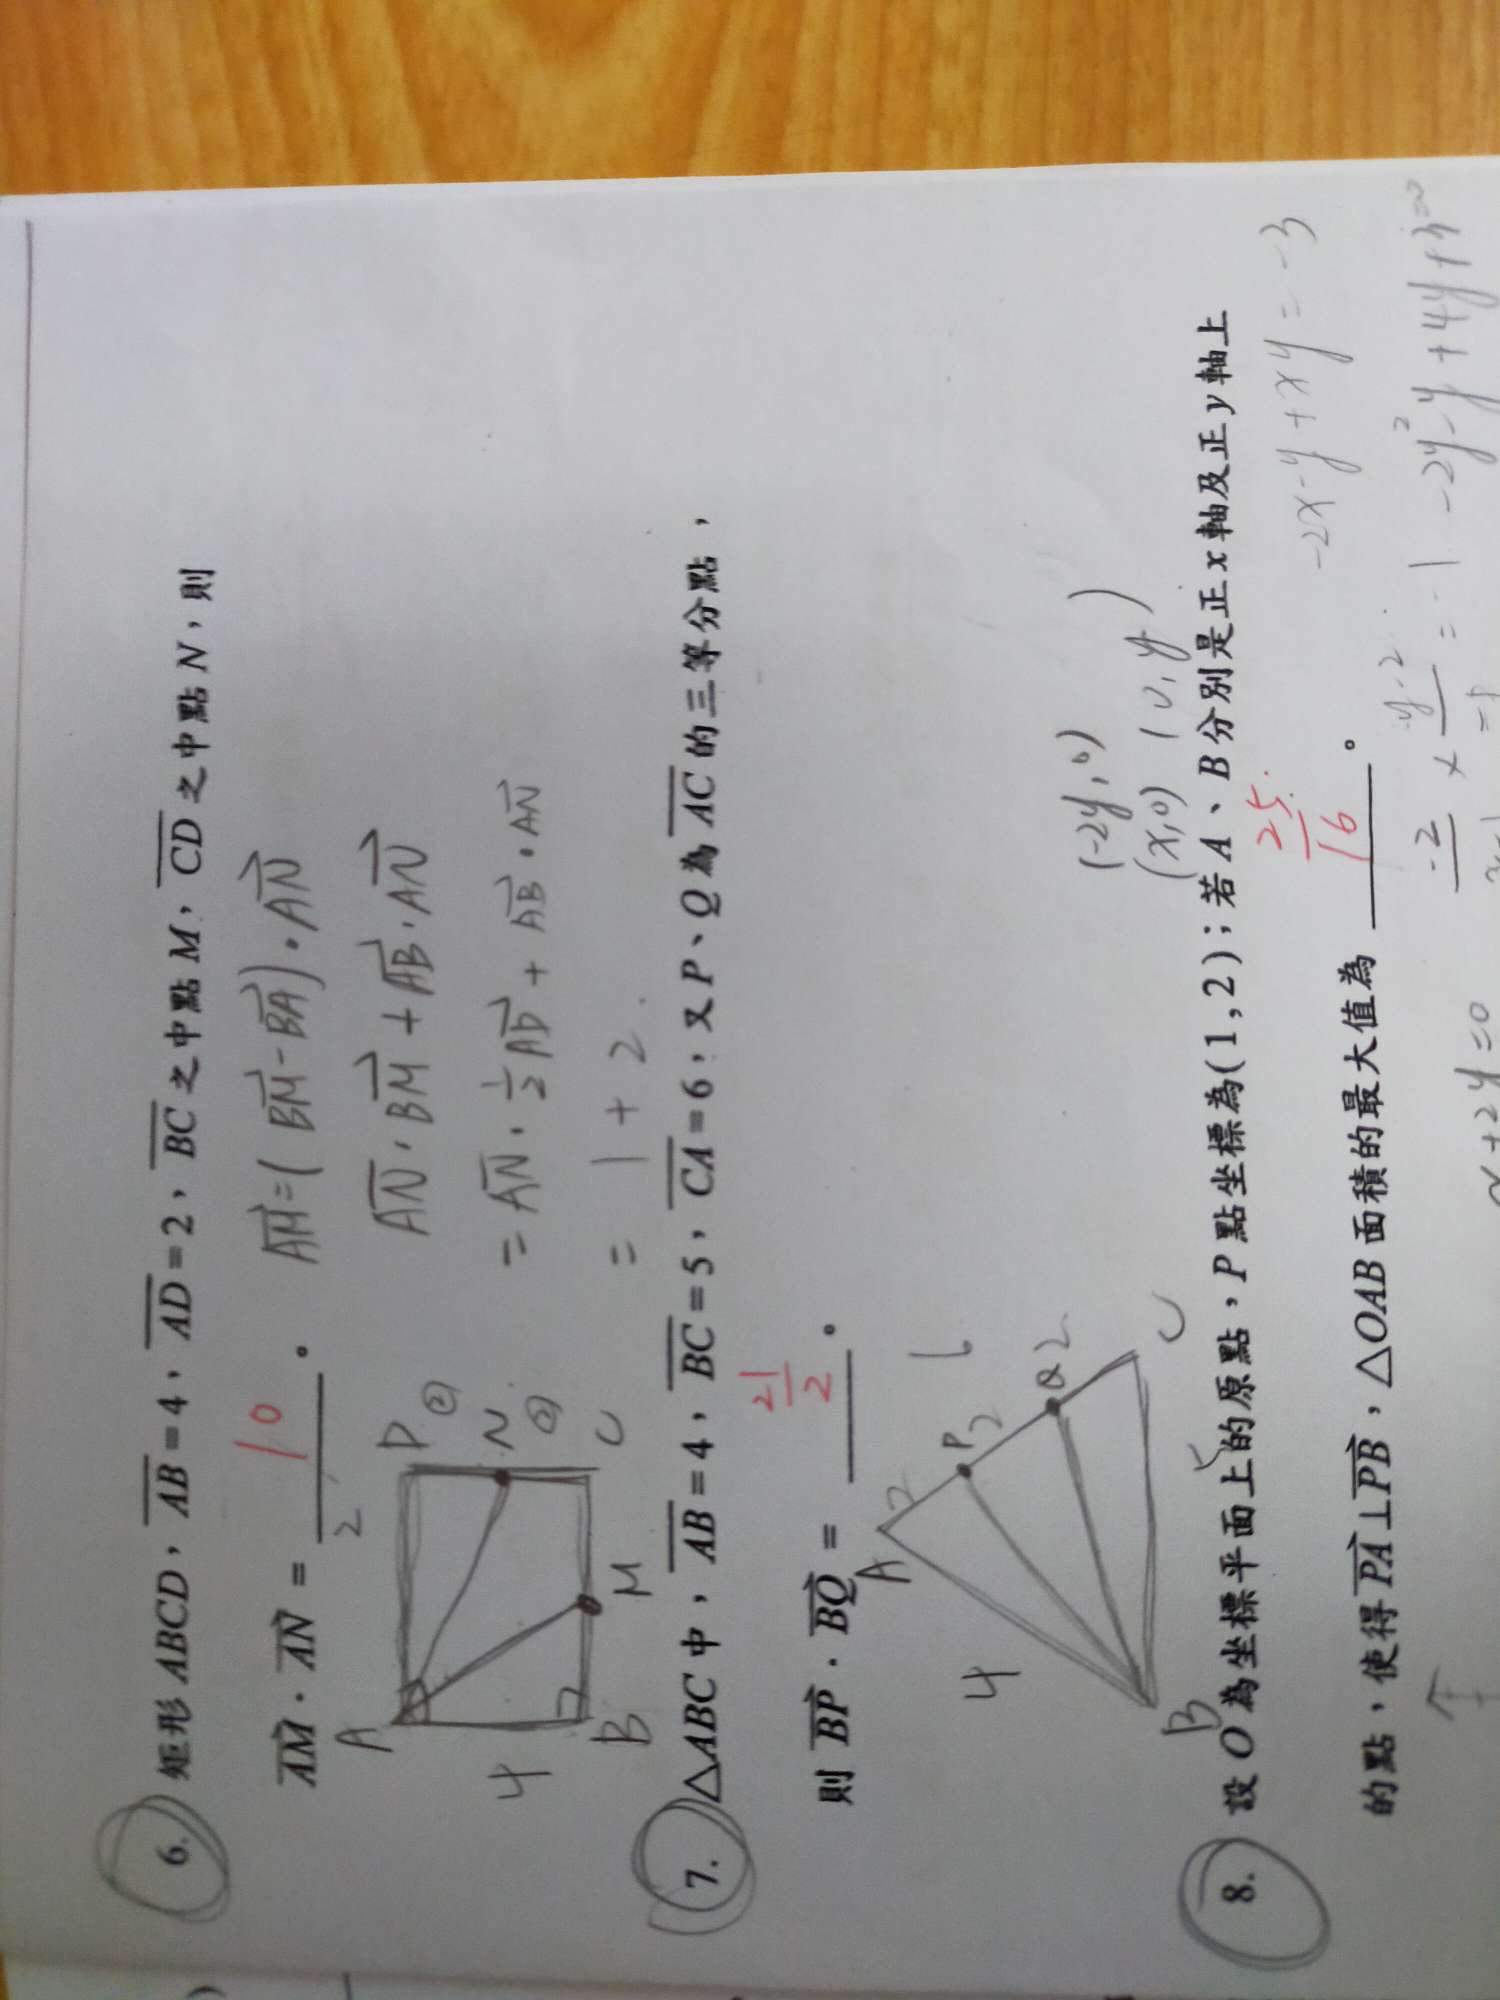 6. 矩形 ABCD，AB=4，AD=2，BC之中點 M，CD之中點 N，則
AM·AN= 10 。
2
AM=(BM-BA)·AN
AN·BM+AB·AN
=AN·1/2AD+AB·AN
=1+2
A D ② N ② C M B 4
7. △ABC中，AB=4，BC=5，CA=6；又P、Q為AC的三等分點，
則BP·BQ= 21/2 。
A 2 P 2 Q 2 C 6 4 5 B
(-2y,0)
(x,0) (0,y)
8. 設O為坐標平面上的原點，P點坐標為(1,2)；若A、B分別是正x軸及正y軸上
的點，使得PA⊥PB，△OAB面積的最大值為 25/16 。
-2x-y+xy=-3
y-2
-2 × = -1
-2y²-y+4y+3=0
x+2y=0